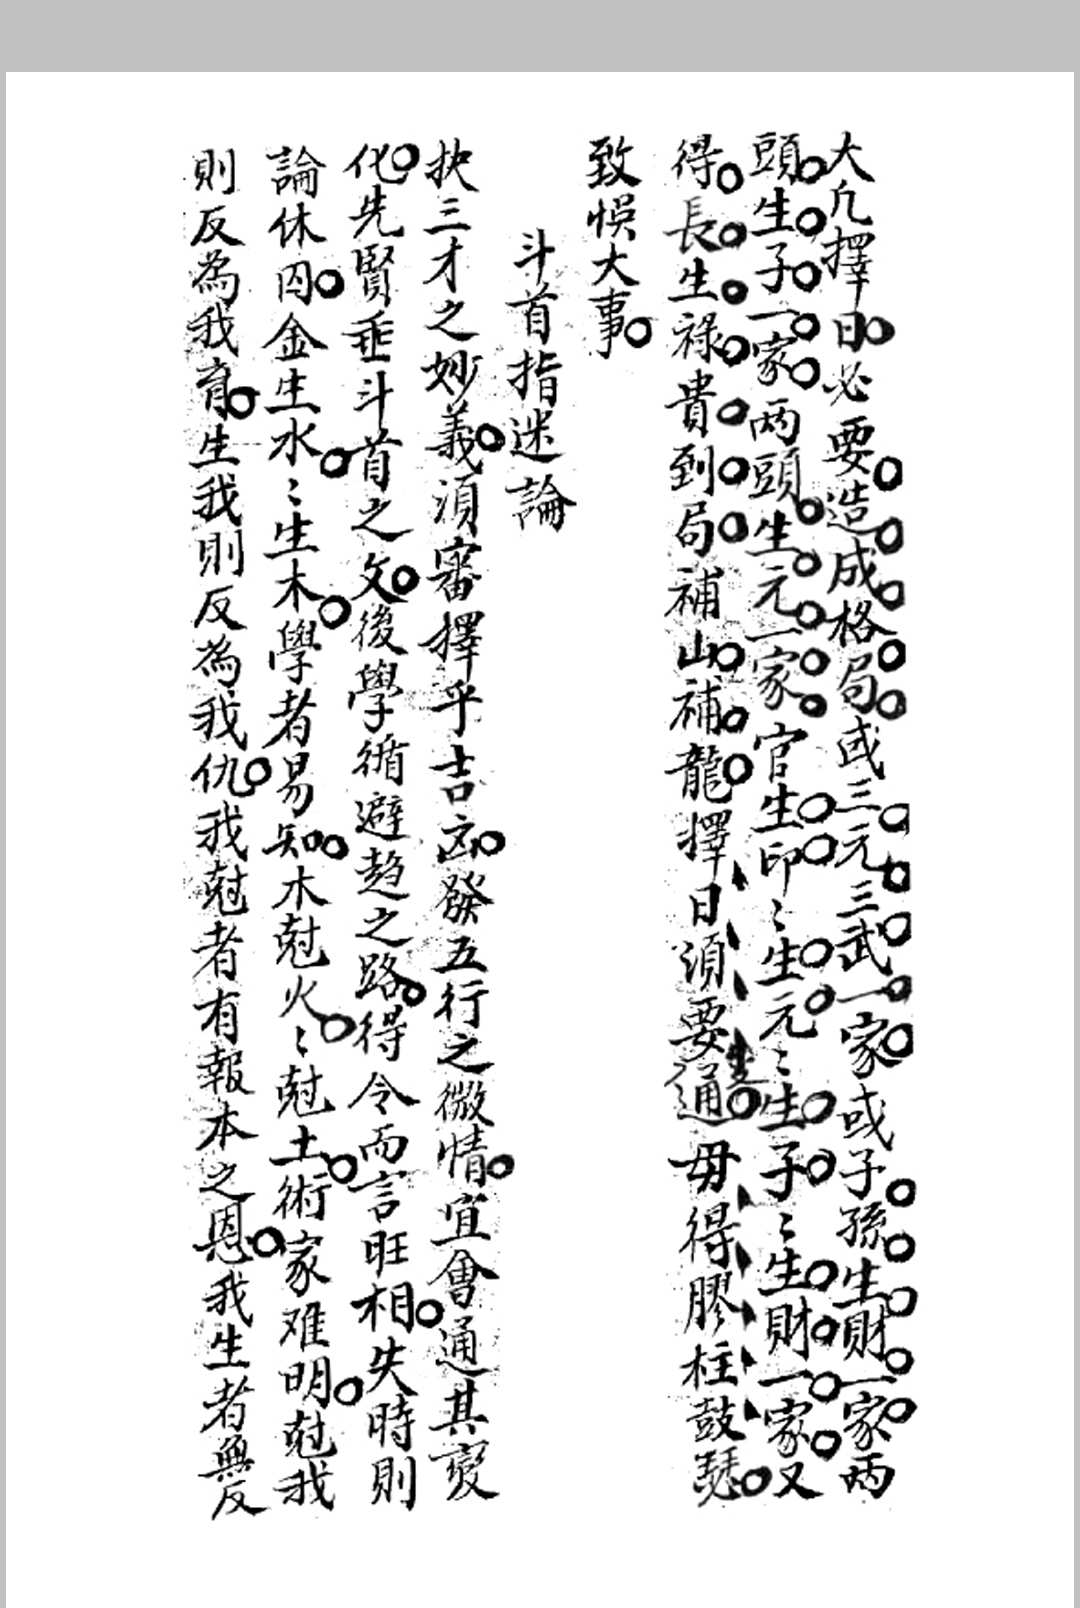 大凢擇日必要造成格局或三元三武一家或子孫生財一家兩
頭生子一家兩頭生元一家官生印〻生元〻生子〻生財一家又
得長生祿貴到局補山補龍擇日須要通毋得膠柱鼓瑟
致悞大事
斗首指迷論
抉三才之妙義須審擇乎吉凶發五行之微情宜會通其變
化先賢垂斗首之文後學循避趋之路得令而言旺相失時則
論休囚金生水〻生木學者易知木尅火〻尅土術家难明尅我
則反為我育生我則反為我仇我尅者有報本之恩我生者無反